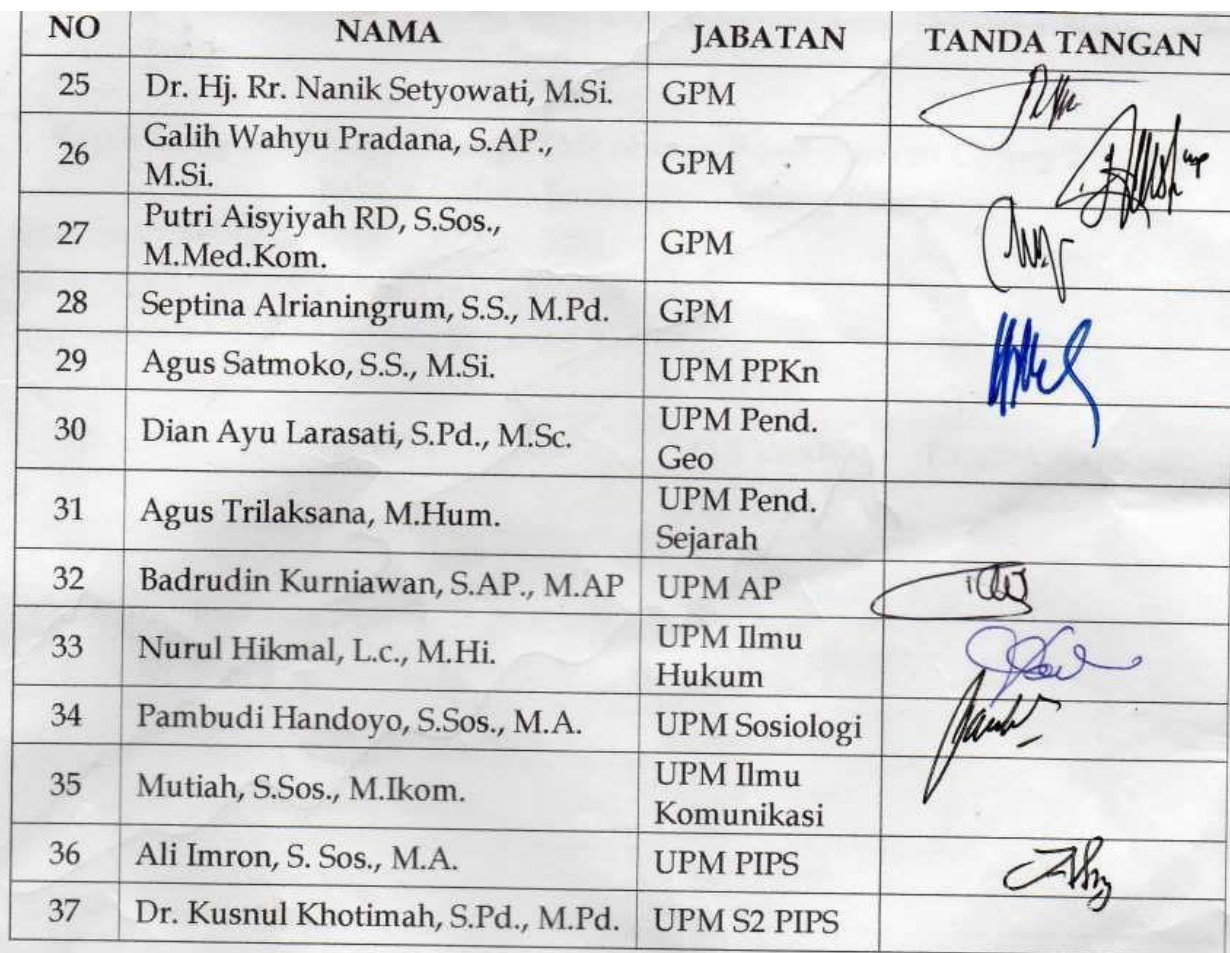 NO NAMA JABATAN TANDA TANGAN
25 Dr. Hj. Rr. Nanik Setyowati, M.Si. GPM
26 Galih Wahyu Pradana, S.AP., M.Si. GPM
27 Putri Aisyiyah RD, S.Sos., M.Med.Kom. GPM
28 Septina Alrianingrum, S.S., M.Pd. GPM
29 Agus Satmoko, S.S., M.Si. UPM PPKn
30 Dian Ayu Larasati, S.Pd., M.Sc. UPM Pend. Geo
31 Agus Trilaksana, M.Hum. UPM Pend. Sejarah
32 Badrudin Kurniawan, S.AP., M.AP UPM AP
33 Nurul Hikmal, L.c., M.Hi. UPM Ilmu Hukum
34 Pambudi Handoyo, S.Sos., M.A. UPM Sosiologi
35 Mutiah, S.Sos., M.Ikom. UPM Ilmu Komunikasi
36 Ali Imron, S. Sos., M.A. UPM PIPS
37 Dr. Kusnul Khotimah, S.Pd., M.Pd. UPM S2 PIPS